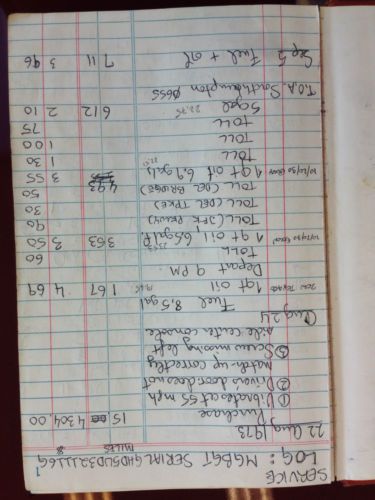 SERVICE
LOG: MGBGT SERIAL GHD5UD321116G
MILES $
22 Aug 1973
Purchase 15 4304.00
① Vibrates at 55 mph
② Drivers door does not
match-up correctly
③ Screw missing left
side center console
Aug 24
Fuel 8.5 gal
1 qt oil 167 4 69
Depart 9 PM
TOLL 60
1 qt oil, 6.5 gal 353 3 50
TOLL (JFK PKWY) 40
TOLL (DEL TPKE) 30
TOLL (DEL BRIDGE) 50
1 qt oil 6.9 gals 493 3 55
TOLL 1 30
TOLL 1 00
TOLL 75
5 gal 612 2 10
T.O.A. Southampton 0655
Sep 5 Fuel + oil 711 3 96